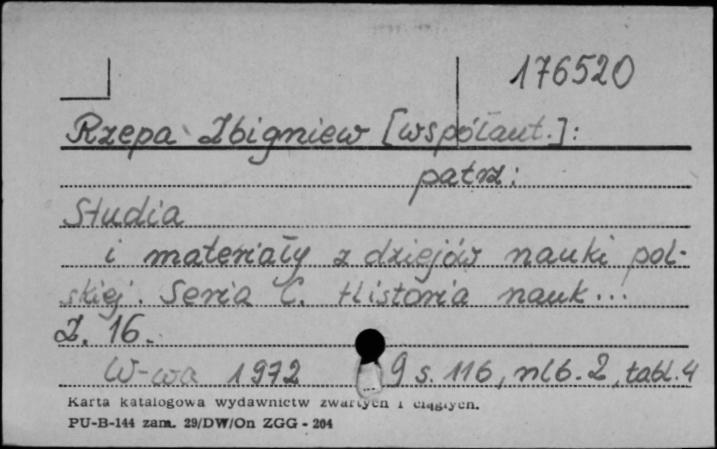 176520
Rzepa Zbigniew [współaut.]:
patrz:
Studia
i materiały z dziejów nauki pol-
skiej. Seria C. Historia nauk...
Z. 16.
W-wa 1972 9 s. 116, nlb. 2, tabl. 4
Karta katalogowa wydawnictw zwartych i ciągłych.
PU-B-144 zam. 29/DW/On ZGG - 204